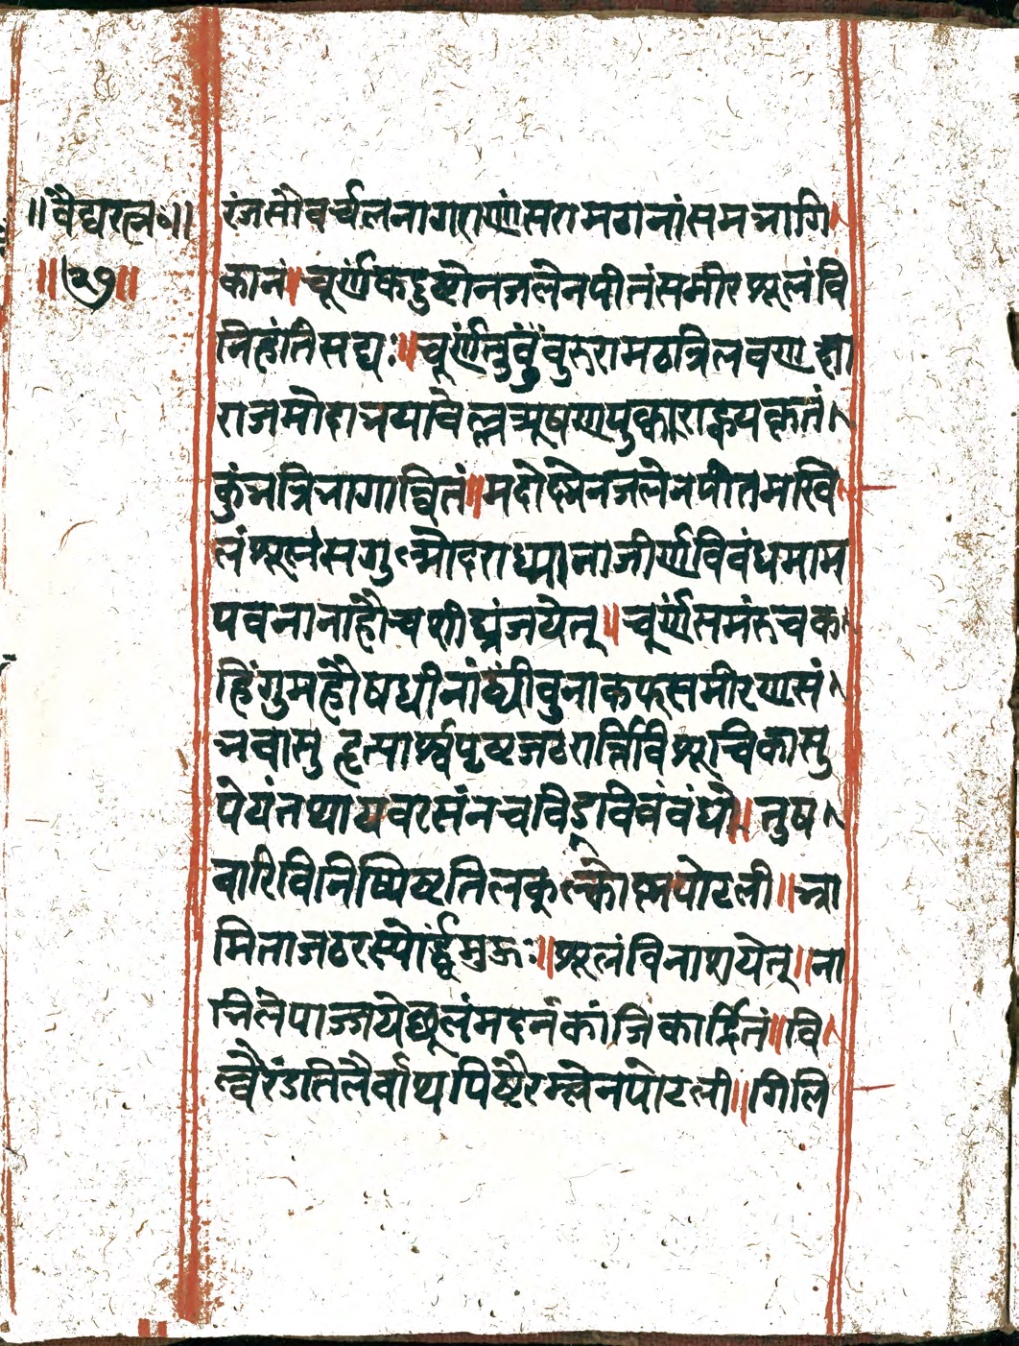 ॥वैद्यरत्नः॥
॥२७॥
रंजसौवर्चलनागराणांसरामठानांसमभागि
कानं॥चूर्णंकदुष्णेनजलेनपीतंसमीरशूलंवि
निहंतिसद्यः॥चूर्णंतुंवुंवुरुरामठत्रिलवणक्षा
राजमोदाभयावेल्लत्र्यूषणपुष्काराह्वयकृतं
कुंभत्रिभागान्वितं॥मदोष्णेनजलेनपीतमखि
लंशूलंसगुल्मोदराध्मानाजीर्णविवंधमाम
पवनानाहौचशीघ्रंजयेत्॥चूर्णंसमंरुचक
हिंगुमहौषधीनांव्द्यीवुनाकफसमीरणसं
भवासुहृत्पार्श्वपृष्टजठरार्त्तिविशूचिकासु
पेयंतथायवरसंनचविड्विवंवंधे॥तुष
वारिविनिष्पिष्टतिलकुल्कोष्मपोटली॥भ्रा
मिताजठरस्योर्द्ध्वमुक्तः॥शूलंविनाशयेत्॥ना
भिलेपाज्जयेछूलंमदनंकांजिकार्द्दितं॥वि
ल्वैरंडतिलैर्वाथपिष्टैरम्लेनपोटली॥गिलि